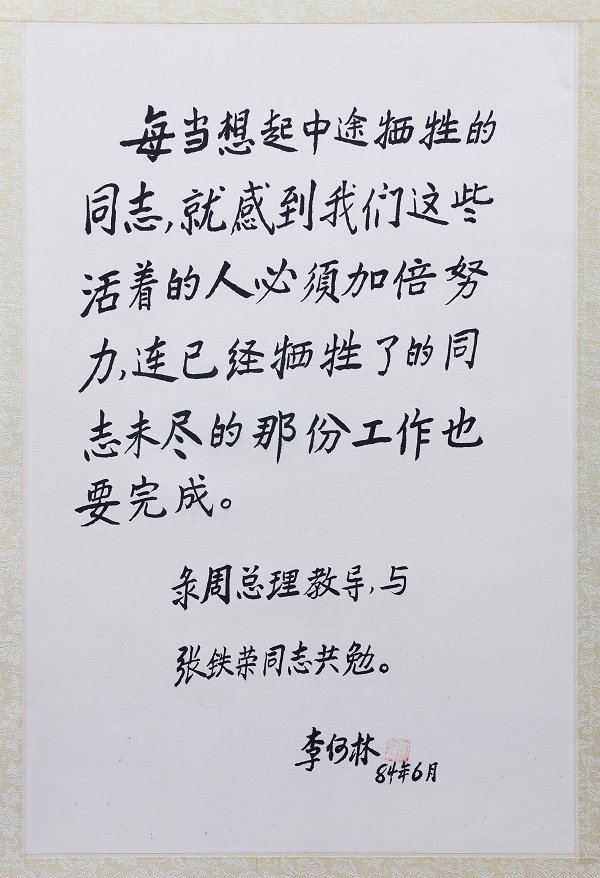 每当想起中途牺牲的
同志,就感到我们这些
活着的人必须加倍努
力,连已经牺牲了的同
志未尽的那份工作也
要完成。
录周总理教导,与
张铁荣同志共勉。
李何林
84年6月